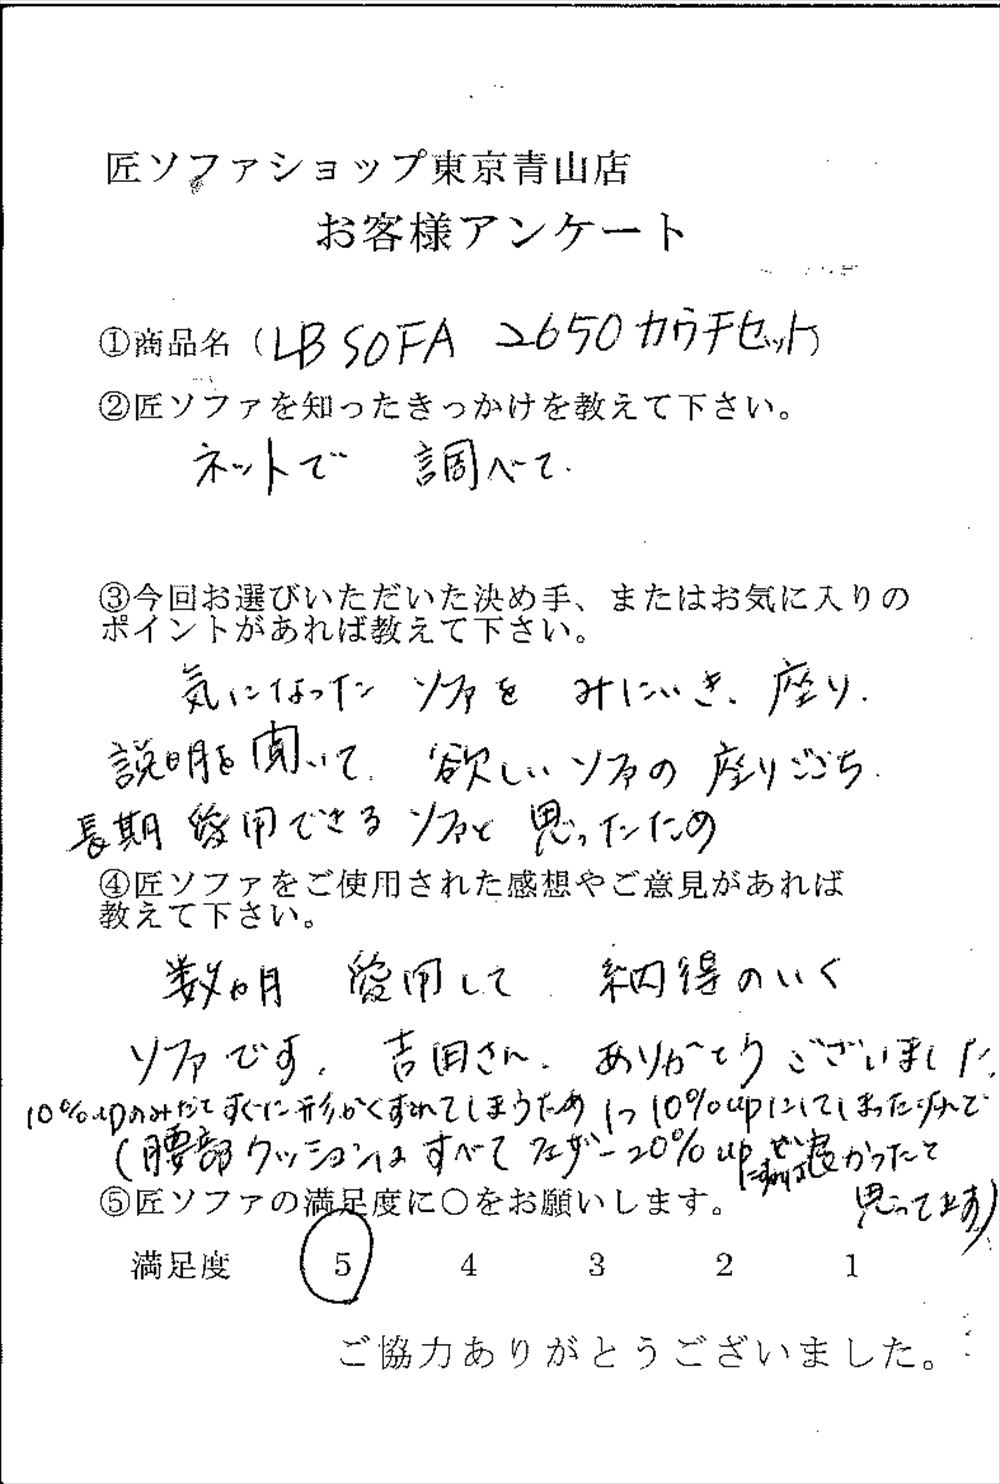 匠ソファショップ東京青山店
お客様アンケート
①商品名(LB SOFA 2650カウチセット)
②匠ソファを知ったきっかけを教えて下さい。
ネットで 調べて.
③今回お選びいただいた決め手、またはお気に入りの
ポイントがあれば教えて下さい。
気になった ソファを みにいき、座り.
説明を聞いて. 欲しいソファの 座りごごち.
長期愛用できるソファと 思ったため
④匠ソファをご使用された感想やご意見があれば
教えて下さい。
数ヵ月 愛用して 納得のいく
ソファです. 吉田さん. ありがとうございました.
10%upのみだとすぐに形がくずれてしまうため 1つ10%upにしてしまったけれで
(腰部クッションは すべて フェザー20%up にすれば 良かったと
思ってます)
⑤匠ソファの満足度に○をお願いします。
満足度 5 4 3 2 1
ご協力ありがとうございました。